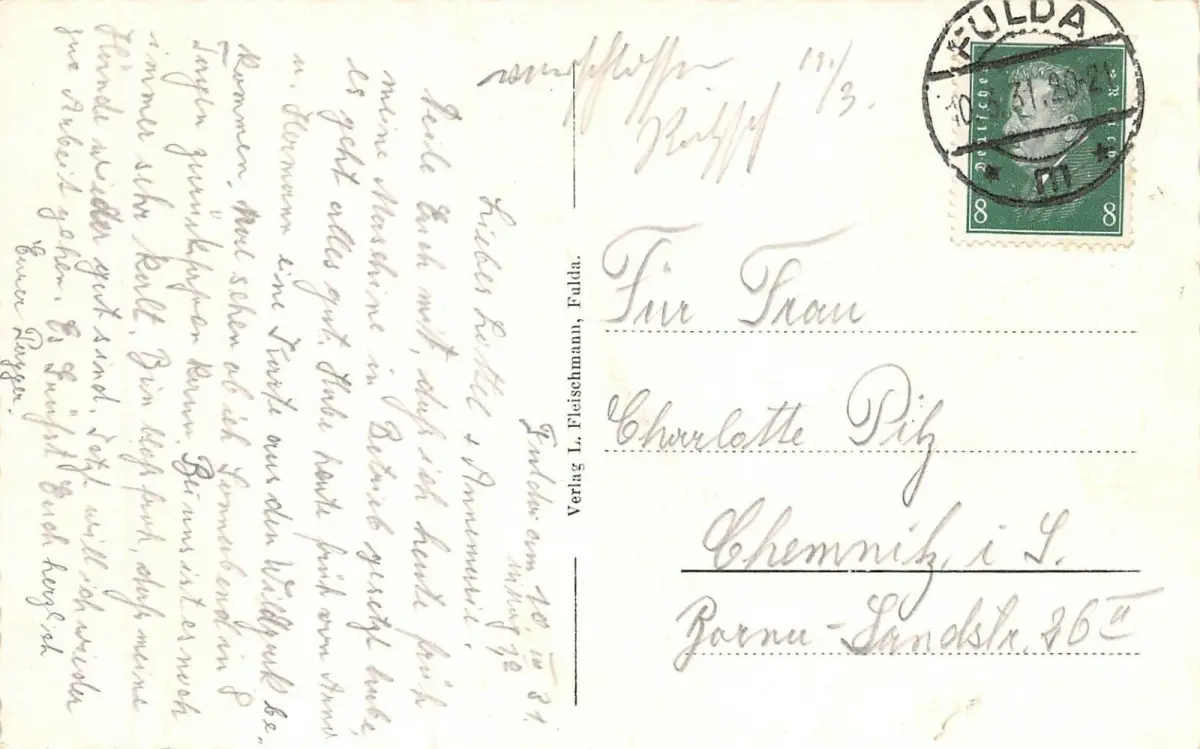 Fulda am 10. III 31.
mittag 12
Liebes Lottel + Annemarie!
Teile Euch mit, daß ich heute früh
meine Maschine in Betrieb gesetzt habe,
es geht alles gut. Habe heute früh von Anna
u. Hermann eine Karte aus den Wildpark be-
kommen. Mal sehen ob ich Sonnabend in 8
Tagen zurückfahren kann. Bei uns ist es noch
immer sehr kalt. Bin bloß froh, daß meine
Hände wieder gut sind. Jetzt will ich wieder
zur Arbeit gehen. Es grüßt Euch herzlich
Euer
Verlag L. Fleischmann, Fulda.
verschlossen
/3.
FULDA
10.3.31.20-21
m
Deutsches Reich
8 8
Für Frau
Charlotte Pilz
Chemnitz i S.
Zornau-Landstr. 26 II